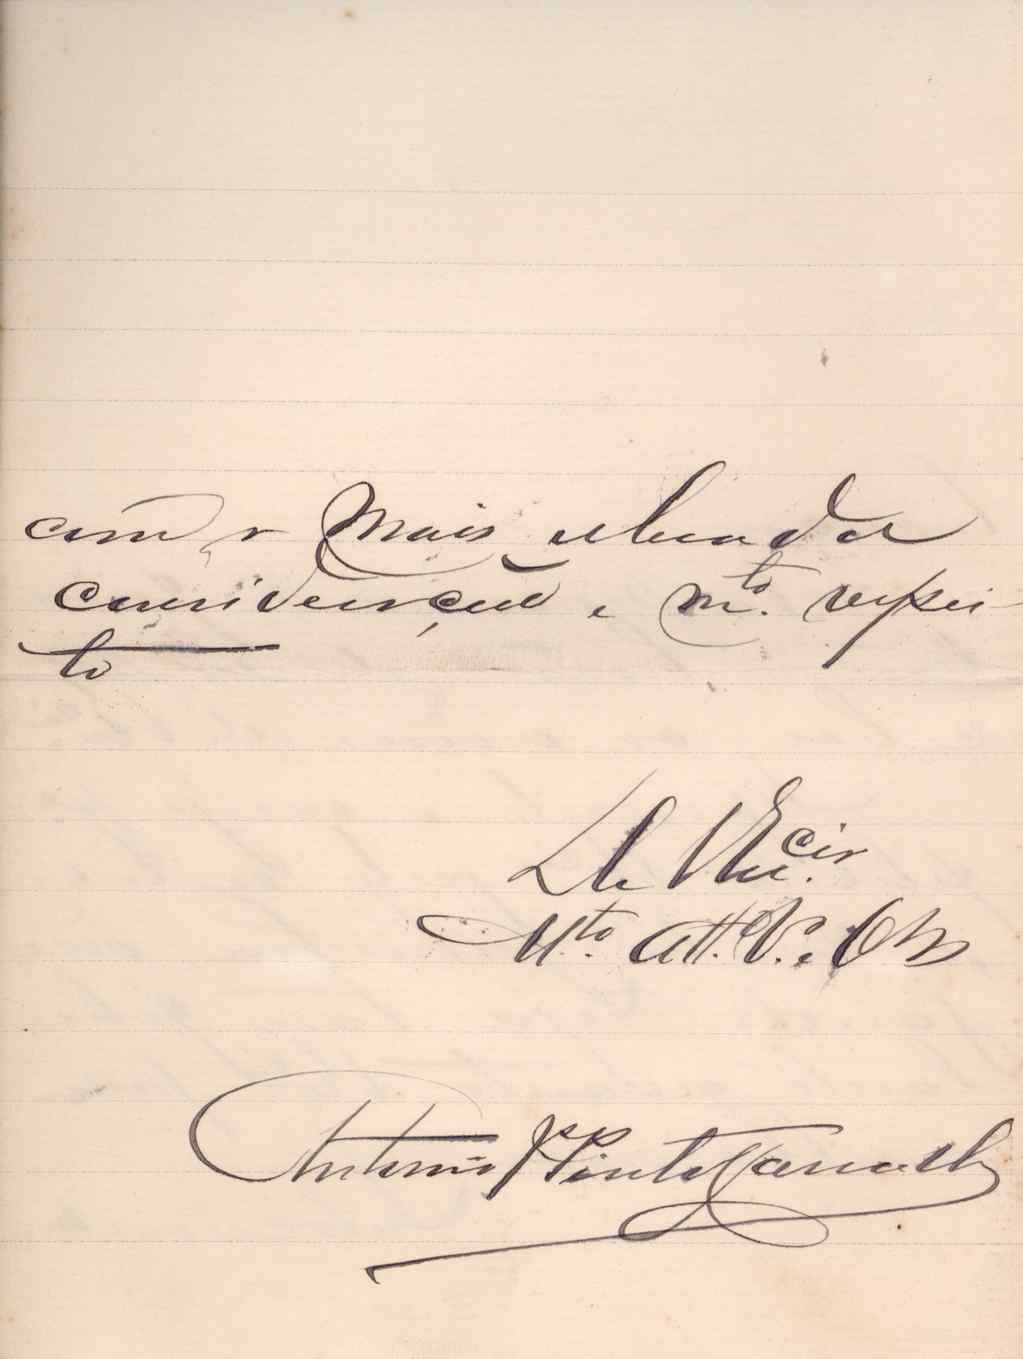 com a mais elevada
consideração e m.to respei-
to
De V Ex.cia
M.to Att.º V.or e Obr
Antonio Pinto